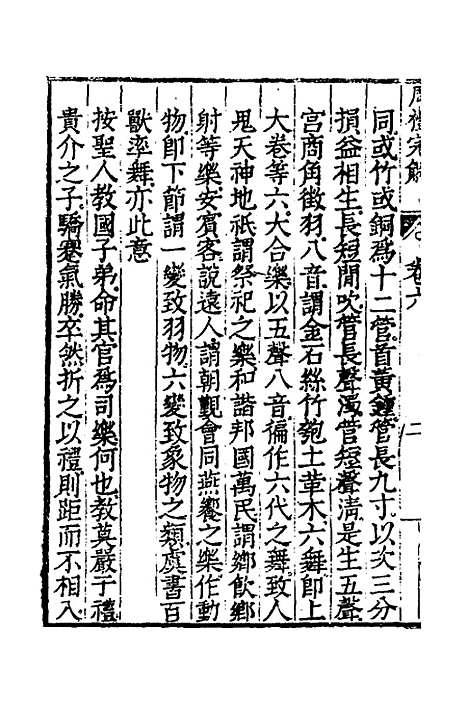 周禮完解 卷六 二
同或竹或銅爲十二管首黃鍾管長九寸以次三分
損益相生長短間吹管長聲濁管短聲清是生五聲
宮商角徵羽八音謂金石絲竹匏土革木六舞即上
大卷等六大合樂以五聲八音徧作六代之舞致人
鬼天神地祇謂祭祀之樂和諧邦國萬民謂鄉飲鄉
射等樂安賓客說遠人謂朝覲會同燕饗之樂作動
物即下節謂一變致羽物六變致象物之類虞書百
獸率舞亦此意
按聖人教國子弟命其官爲司樂何也教莫嚴于禮
貴介之子驕蹇氣勝卒然折之以禮則距而不相入